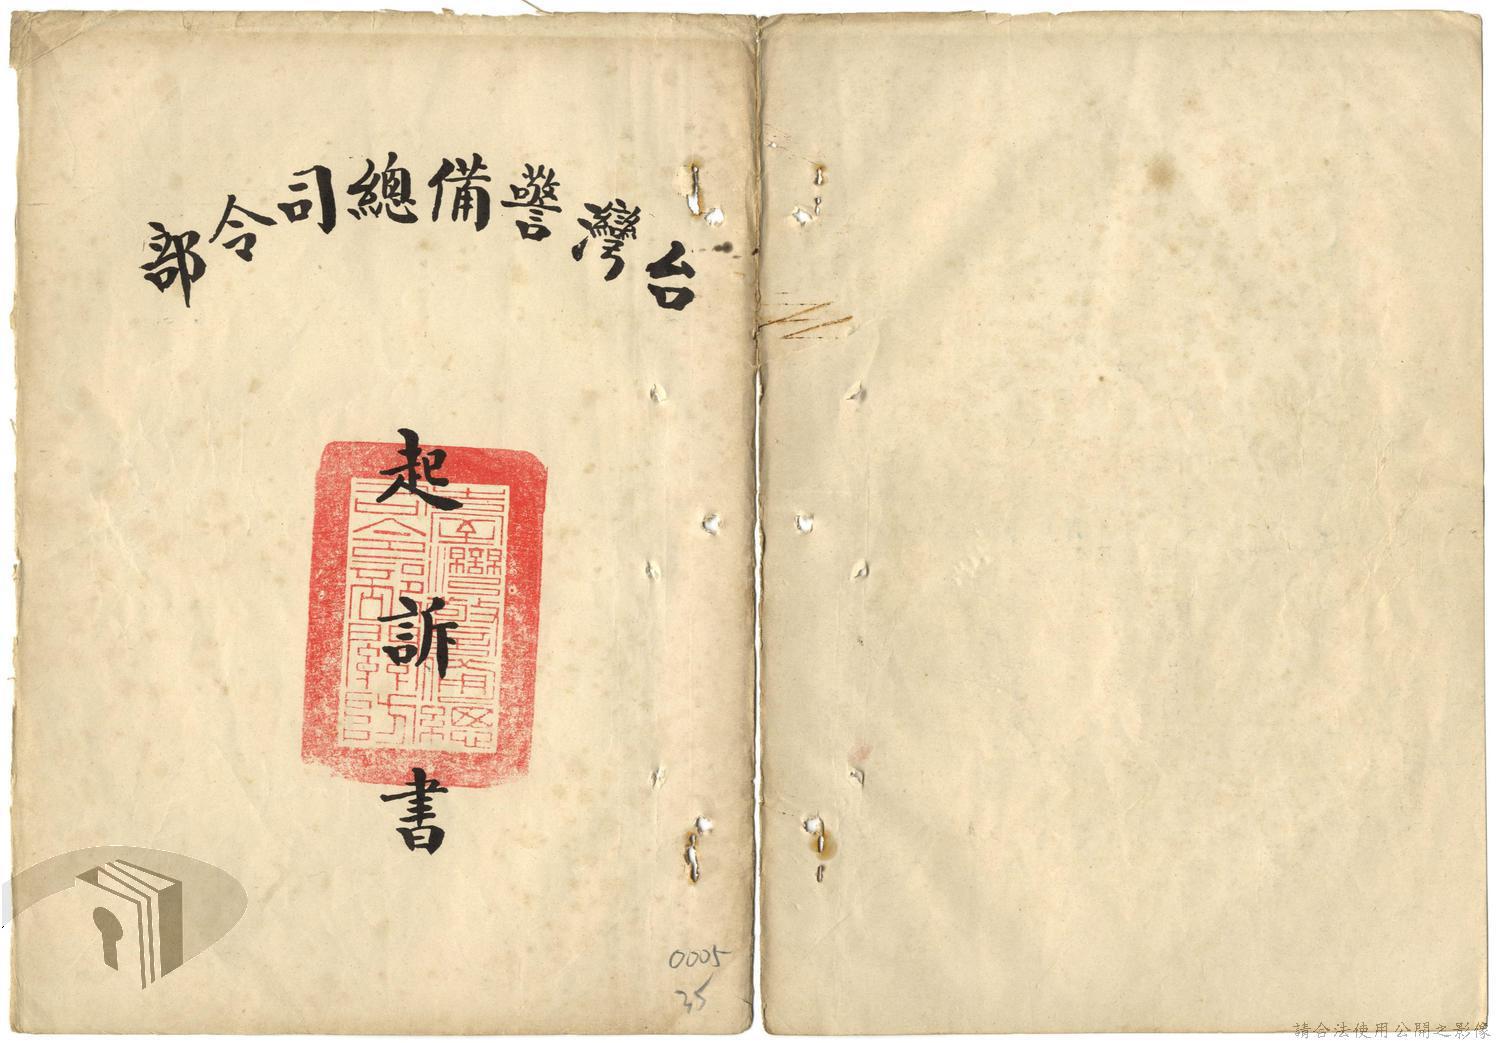 台灣警備總司令部
起訴書
臺灣警備總
司令部關防
0005
35
請合法使用公開之影像